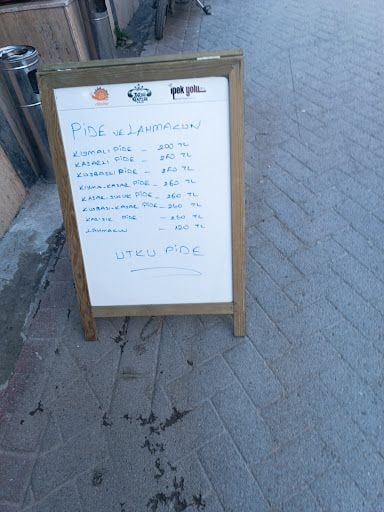 ipek yolu
PİDE VE LAHMACUN
KIYMALI PİDE - 200 TL
KAŞARLI PİDE - 250 TL
KUŞBAŞLI PİDE - 250 TL
KIYMA-KAŞAR PİDE - 260 TL
KAŞAR-SUCUK PİDE - 260 TL
KUŞBAŞI-KAŞAR PİDE - 260 TL
KARIŞIK PİDE - 260 TL
LAHMACUN - 120 TL
UTKU PİDE